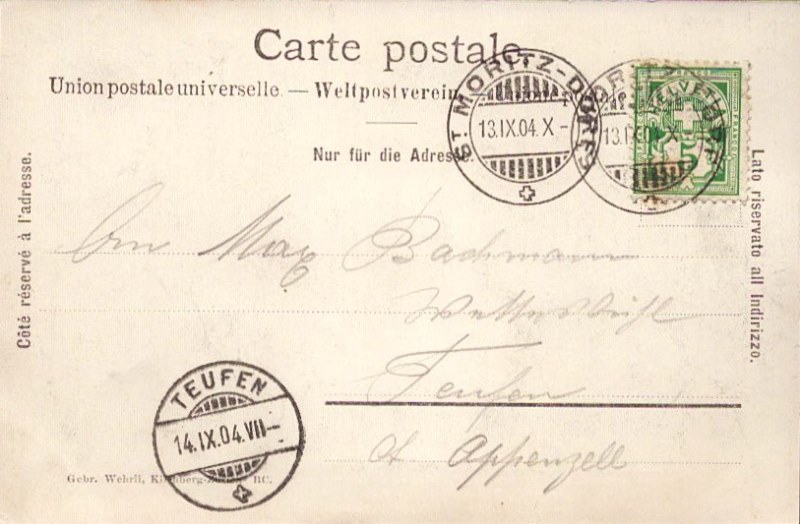 Carte postale
Union postale universelle. — Weltpostverein.
Nur für die Adresse.
Côté réservé à l'adresse.
Lato riservato all Indirizzo.
ST MORITZ-DORF
13.IX.04.X-
13.IX.04.X-
HELVETIA
5
Max Bachmann
Teufen
Ct Appenzell
TEUFEN
14.IX.04.VII-
Gebr. Wehrli,